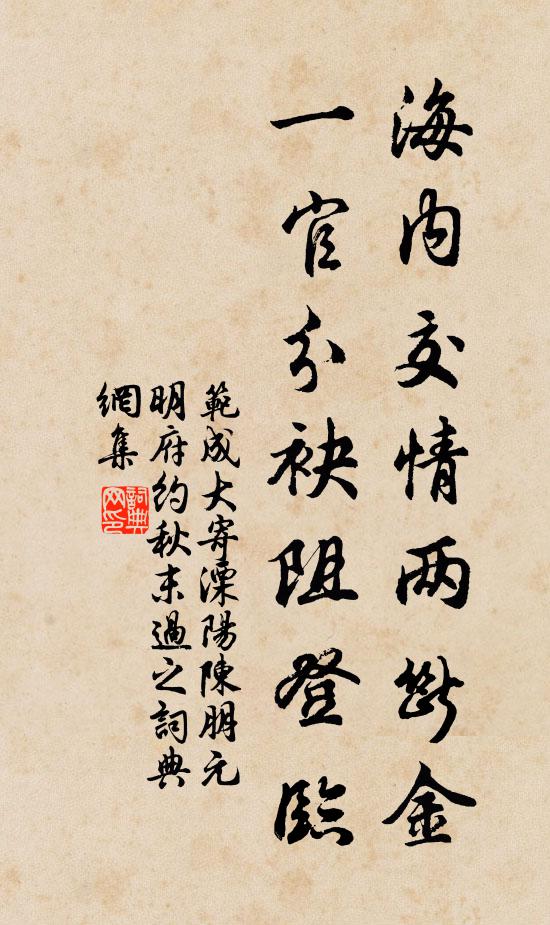 海内交情两斷金
一官分袂阻登臨
範成大寄溧陽陳朋元
明府約秋末過之詞典
網集
詞典
网印